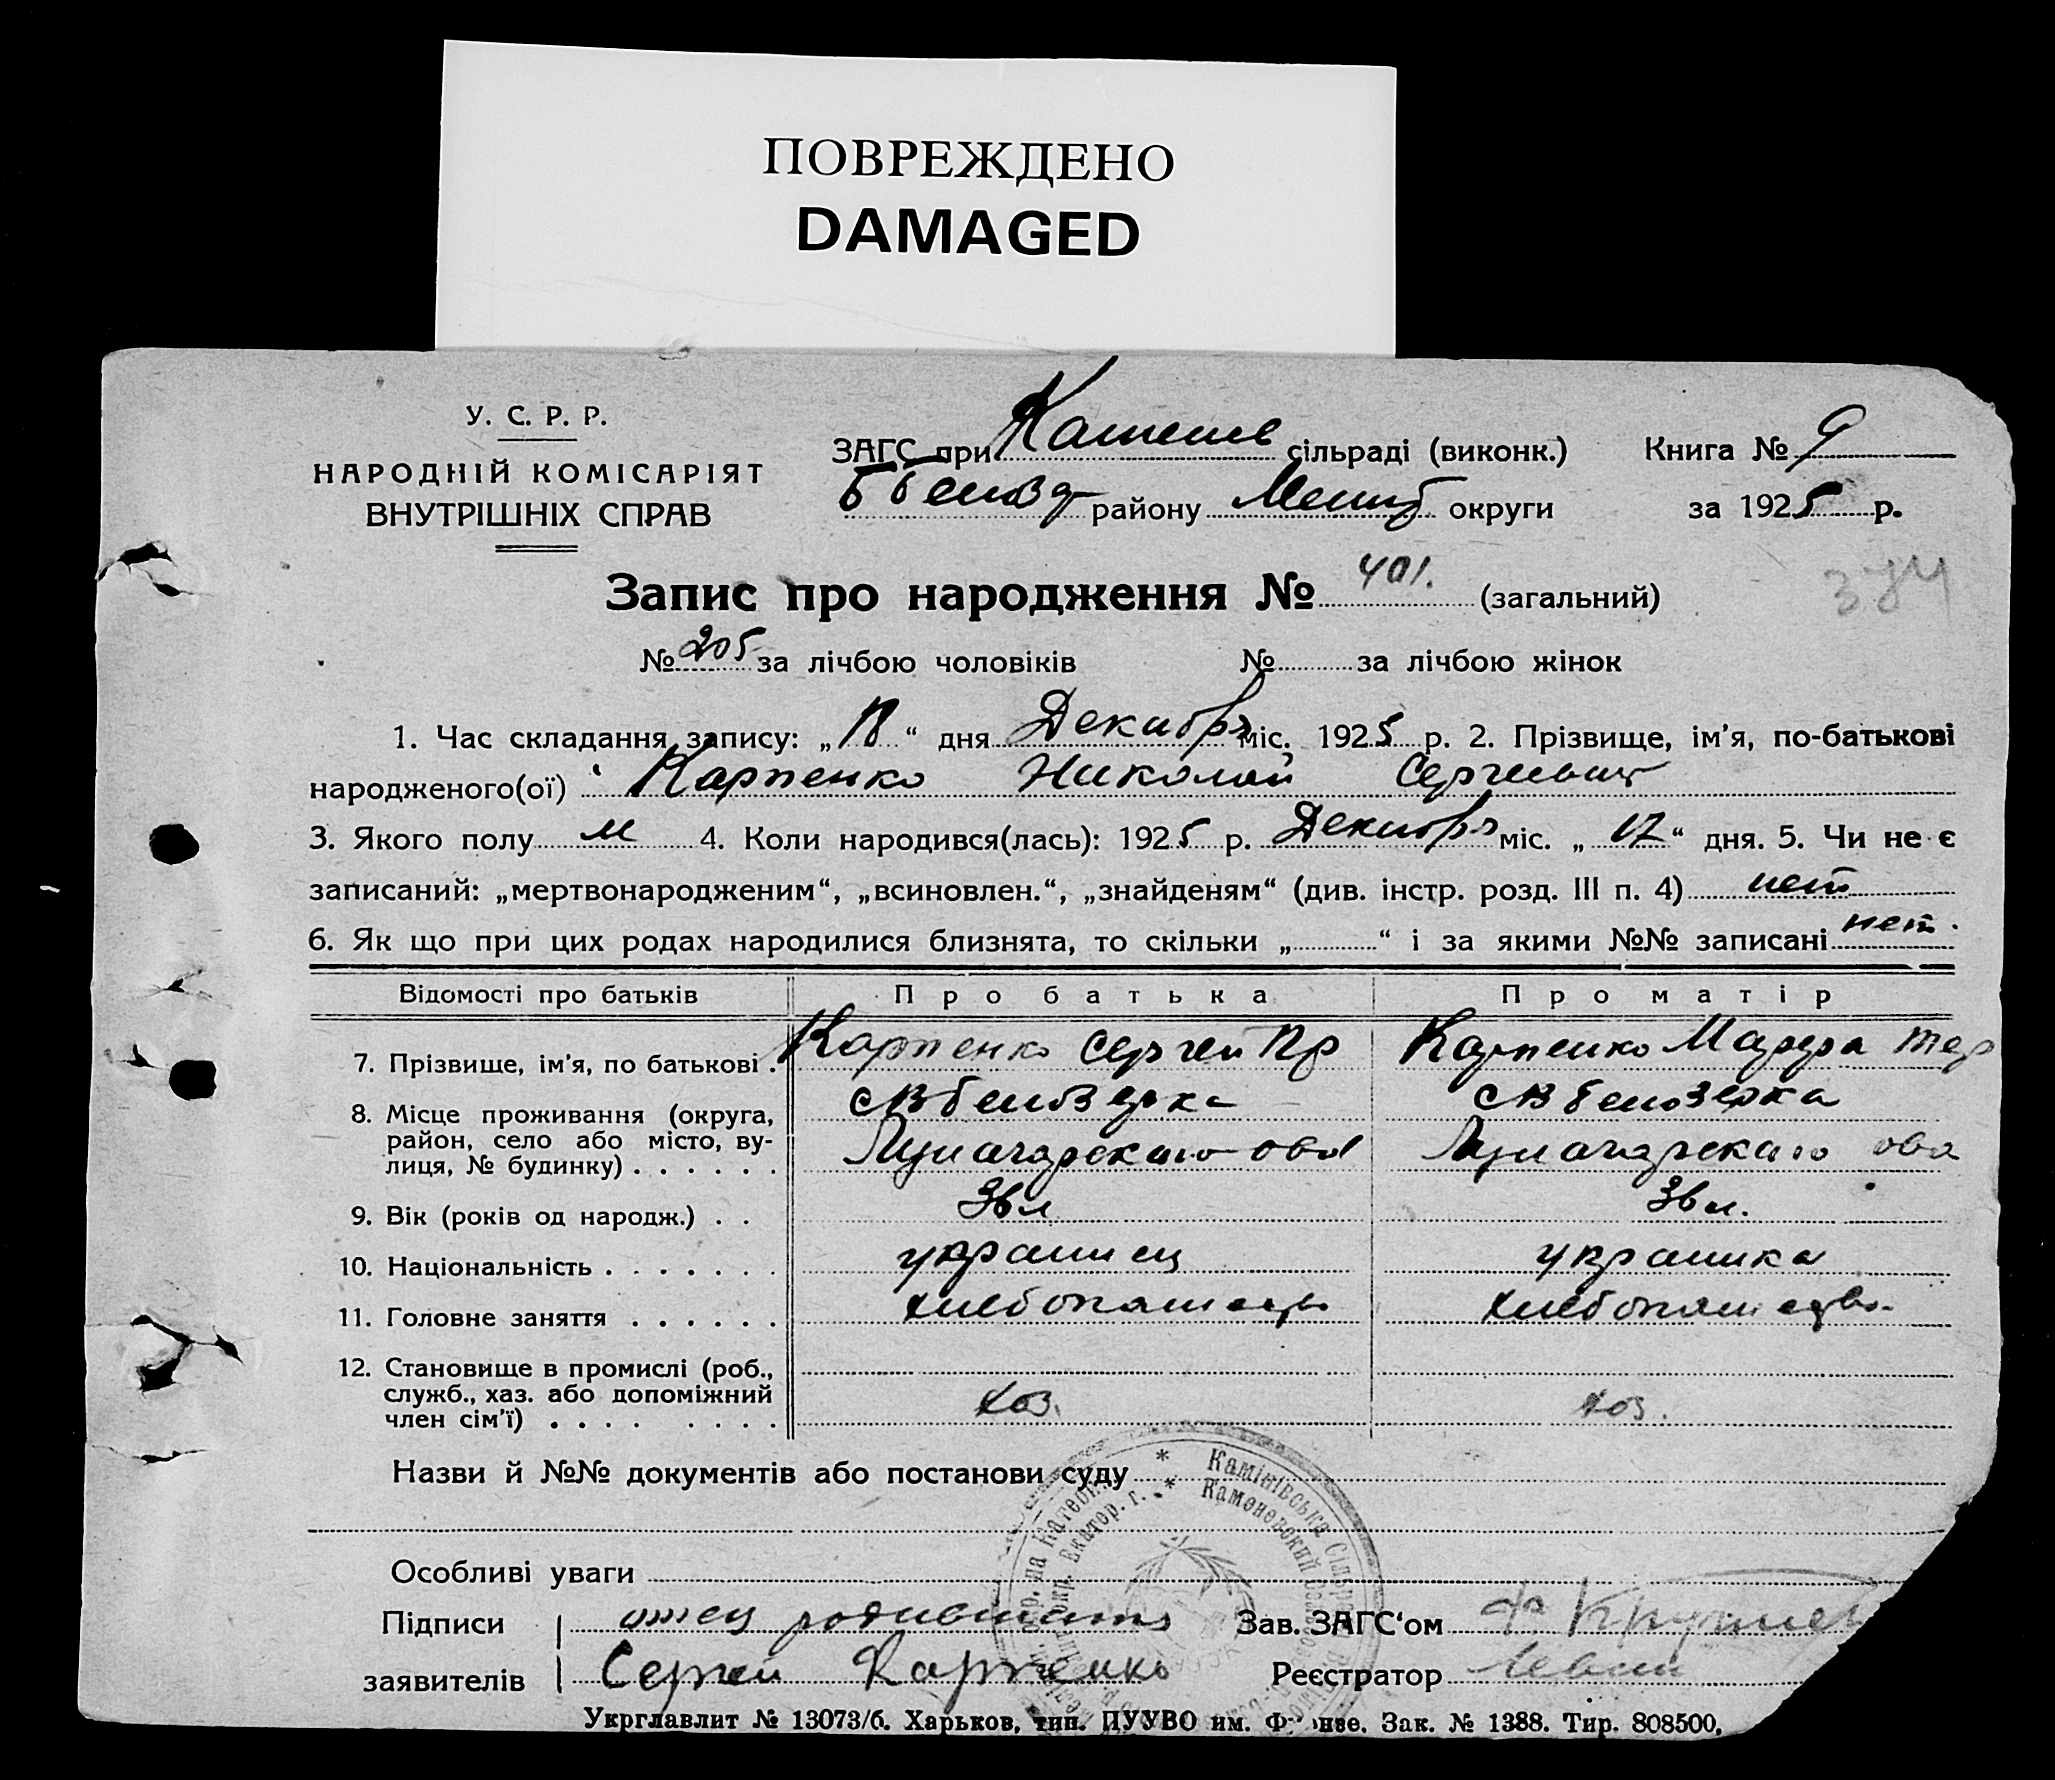 ПОВРЕЖДЕНО
DAMAGED
У. С. Р. Р.
НАРОДНІЙ КОМІСАРІЯТ
ВНУТРІШНІХ СПРАВ
ЗАГС при сільраді (виконк.) Книга № 9
району округи за 1925 р.
Запис про народження № 401. (загальний)
374
№ 205 за лічбою чоловіків № за лічбою жінок
1. Час складання запису: „ “ дня Декабря міс. 1925 р. 2. Прізвище, ім’я, по-батькові
народженого(ої) Карпенко Николай Сергеевич
3. Якого полу м 4. Коли народився(лась): 1925 р. Декабря міс. „17“ дня. 5. Чи не є
записаний: „мертвонародженим“, „всиновлен.“, „знайденям“ (див. інстр. розд. III п. 4) нет
6. Як що при цих родах народилися близнята, то скільки „ “ і за якими №№ записані нет.
Відомості про батьків Про батька Про матір
7. Прізвище, ім’я, по батькові . Карпенко Сергей Пр Карпенко Марфа
8. Місце проживання (округа,
район, село або місто, ву-
лиця, № будинку) . . . . . . Луначарского Луначарского
9. Вік (років од народж.) . . 36 л 36 л.
10. Національність . . . . . . . украинец украинка
11. Головне заняття . . . . . . хлебопашество хлебопашество.
12. Становище в промислі (роб.,
служб., хаз. або допоміжний
член сім’ї) . . . . . . . . хоз. хоз.
Назви й №№ документів або постанови суду
Особливі уваги
Підписи отец Зав. ЗАГС‘ом
заявителів Сергей Карпенко Реєстратор
Камінівська
Каменовский
Укрглавлит № 13073/б. Харьков, тип. ПУУВО им. Зак. № 1388. Тир. 808500,